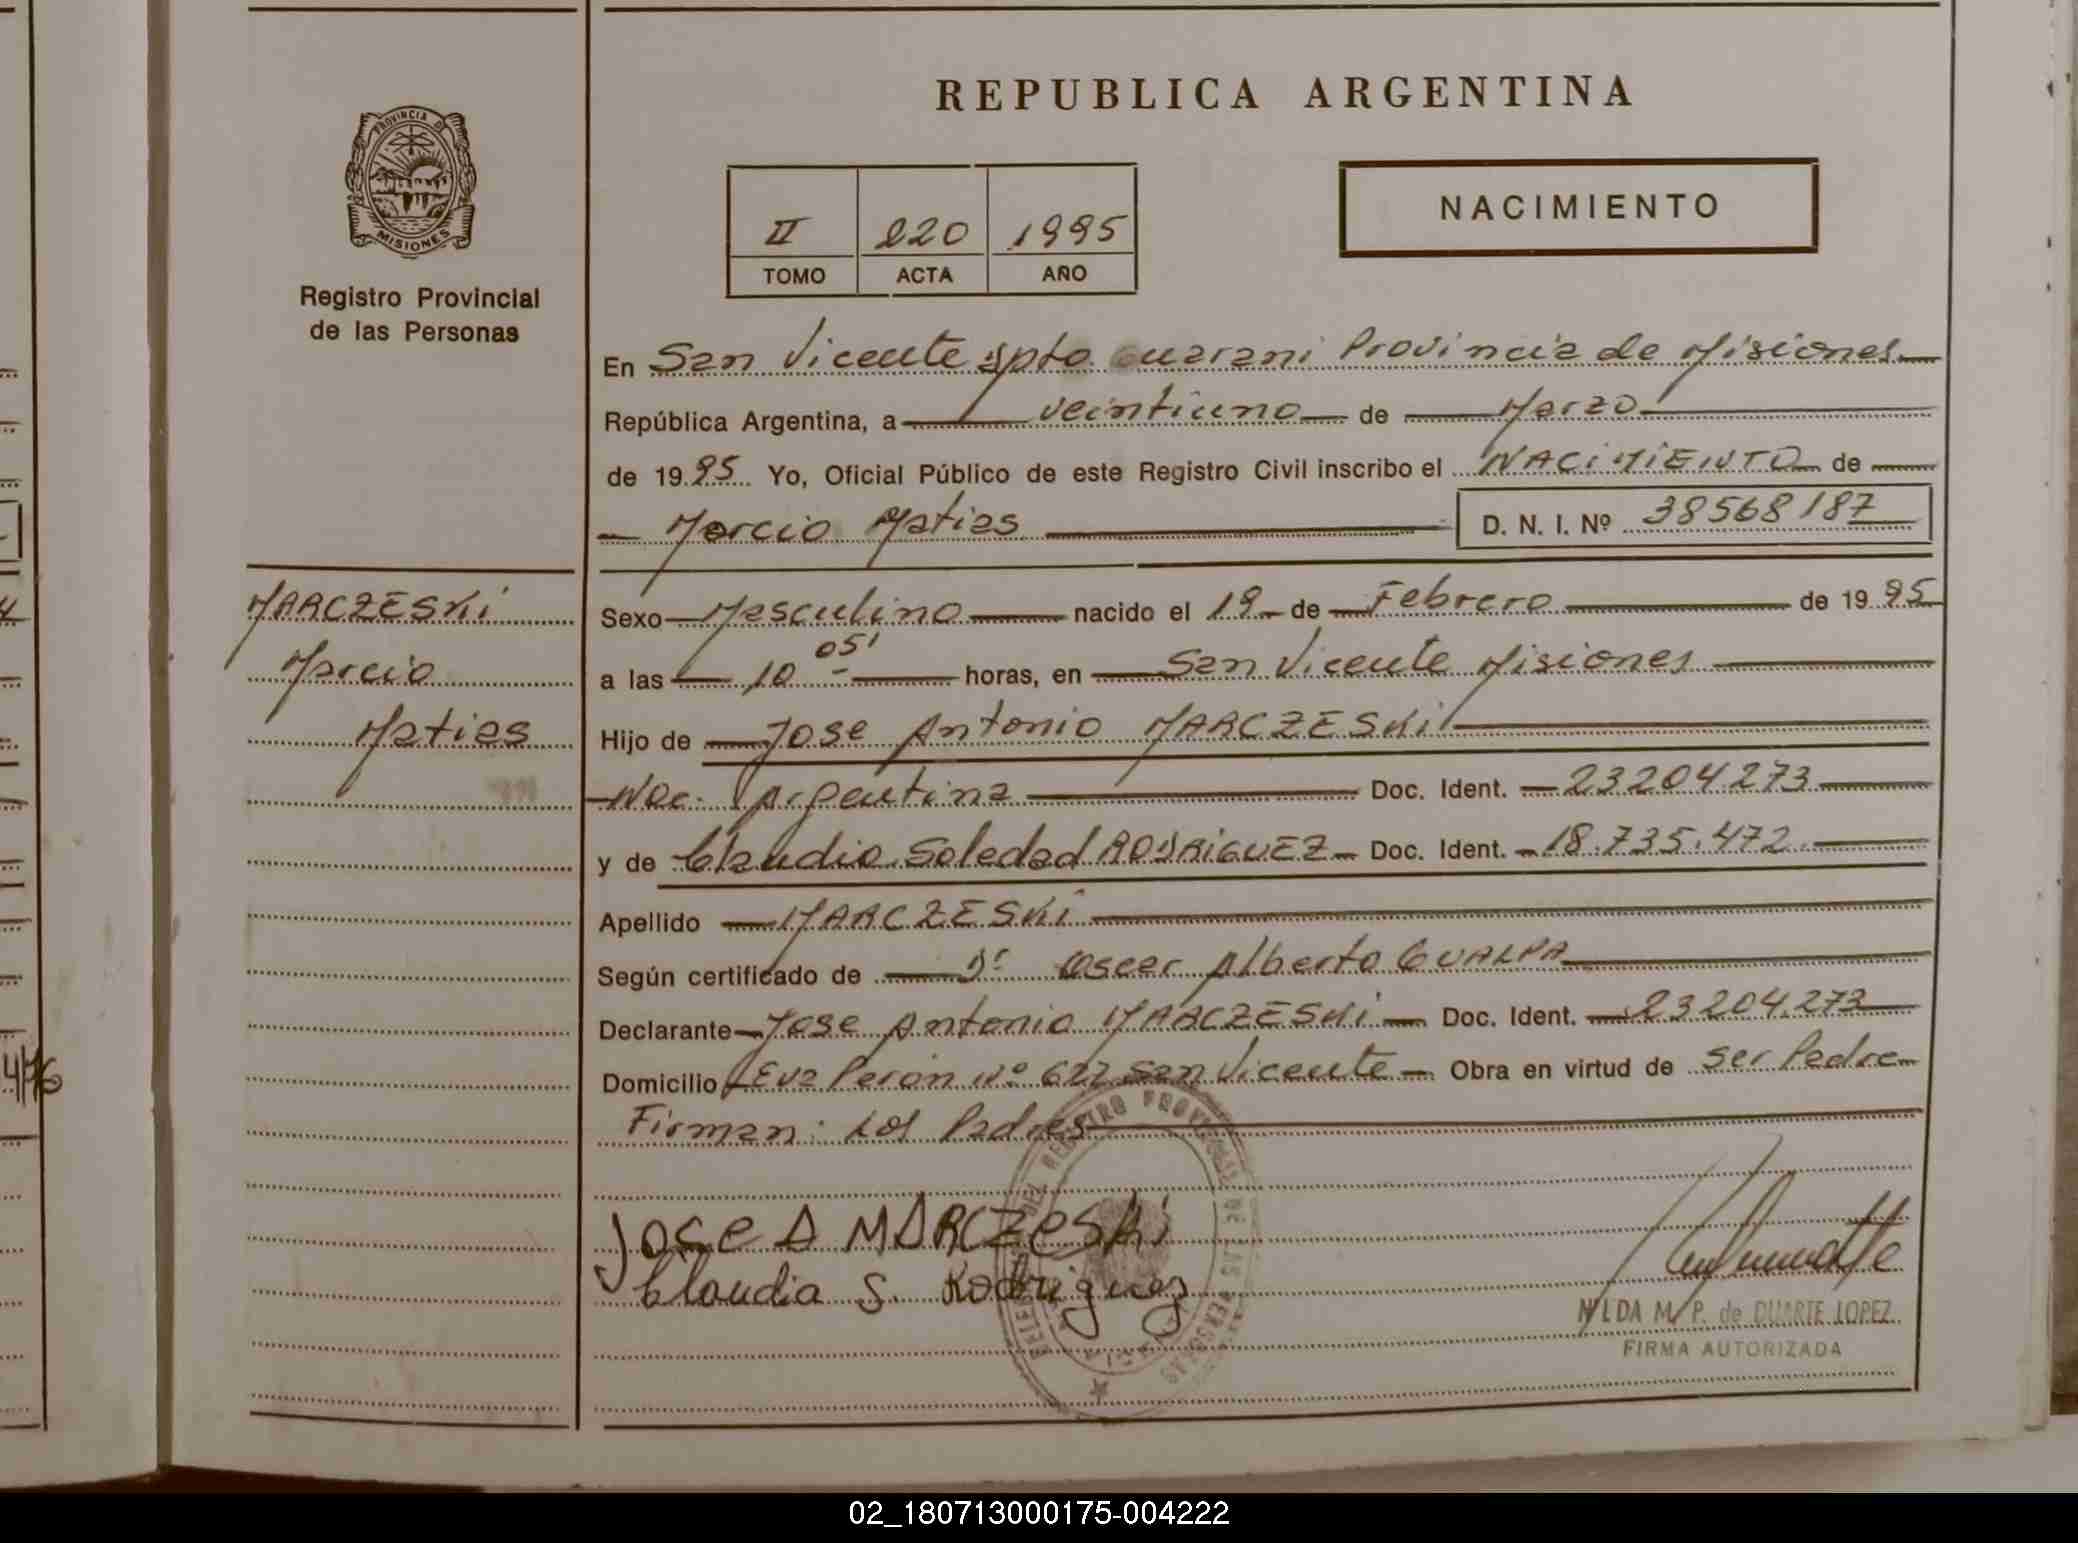 REPUBLICA ARGENTINA
PROVINCIA DE
MISIONES
Registro Provincial
de las Personas
II 220 1995
TOMO ACTA AÑO
NACIMIENTO
En San Vicente Dpto. Guarani Provincia de Misiones
República Argentina, a veintiuno de Marzo
de 1995 Yo, Oficial Público de este Registro Civil inscribo el NACIMIENTO de
Marcio Matias D. N. I. Nº 38568187
MARCZESKi
Marcio
Matias
Sexo Masculino nacido el 19 de Febrero de 1995
a las 10 05' horas, en San Vicente Misiones
Hijo de Jose Antonio MARCZESKi
Nac. Argentina Doc. Ident. 23204273
y de Claudia Soledad RODRiGUEZ Doc. Ident. 18.735.472.
Apellido MARCZESKi
Según certificado de Dr Oscar Alberto GUALPA
Declarante Jose Antonio MARCZESKi Doc. Ident. 23204.273
Domicilio Eva Peron Nº 622 San Vicente Obra en virtud de ser Padre
Firman: Los Padres
JOSE A MARCZESKi
Claudia S. Rodriguez
NILDA M. P. de DUARTE LOPEZ
FIRMA AUTORIZADA
02_180713000175-004222